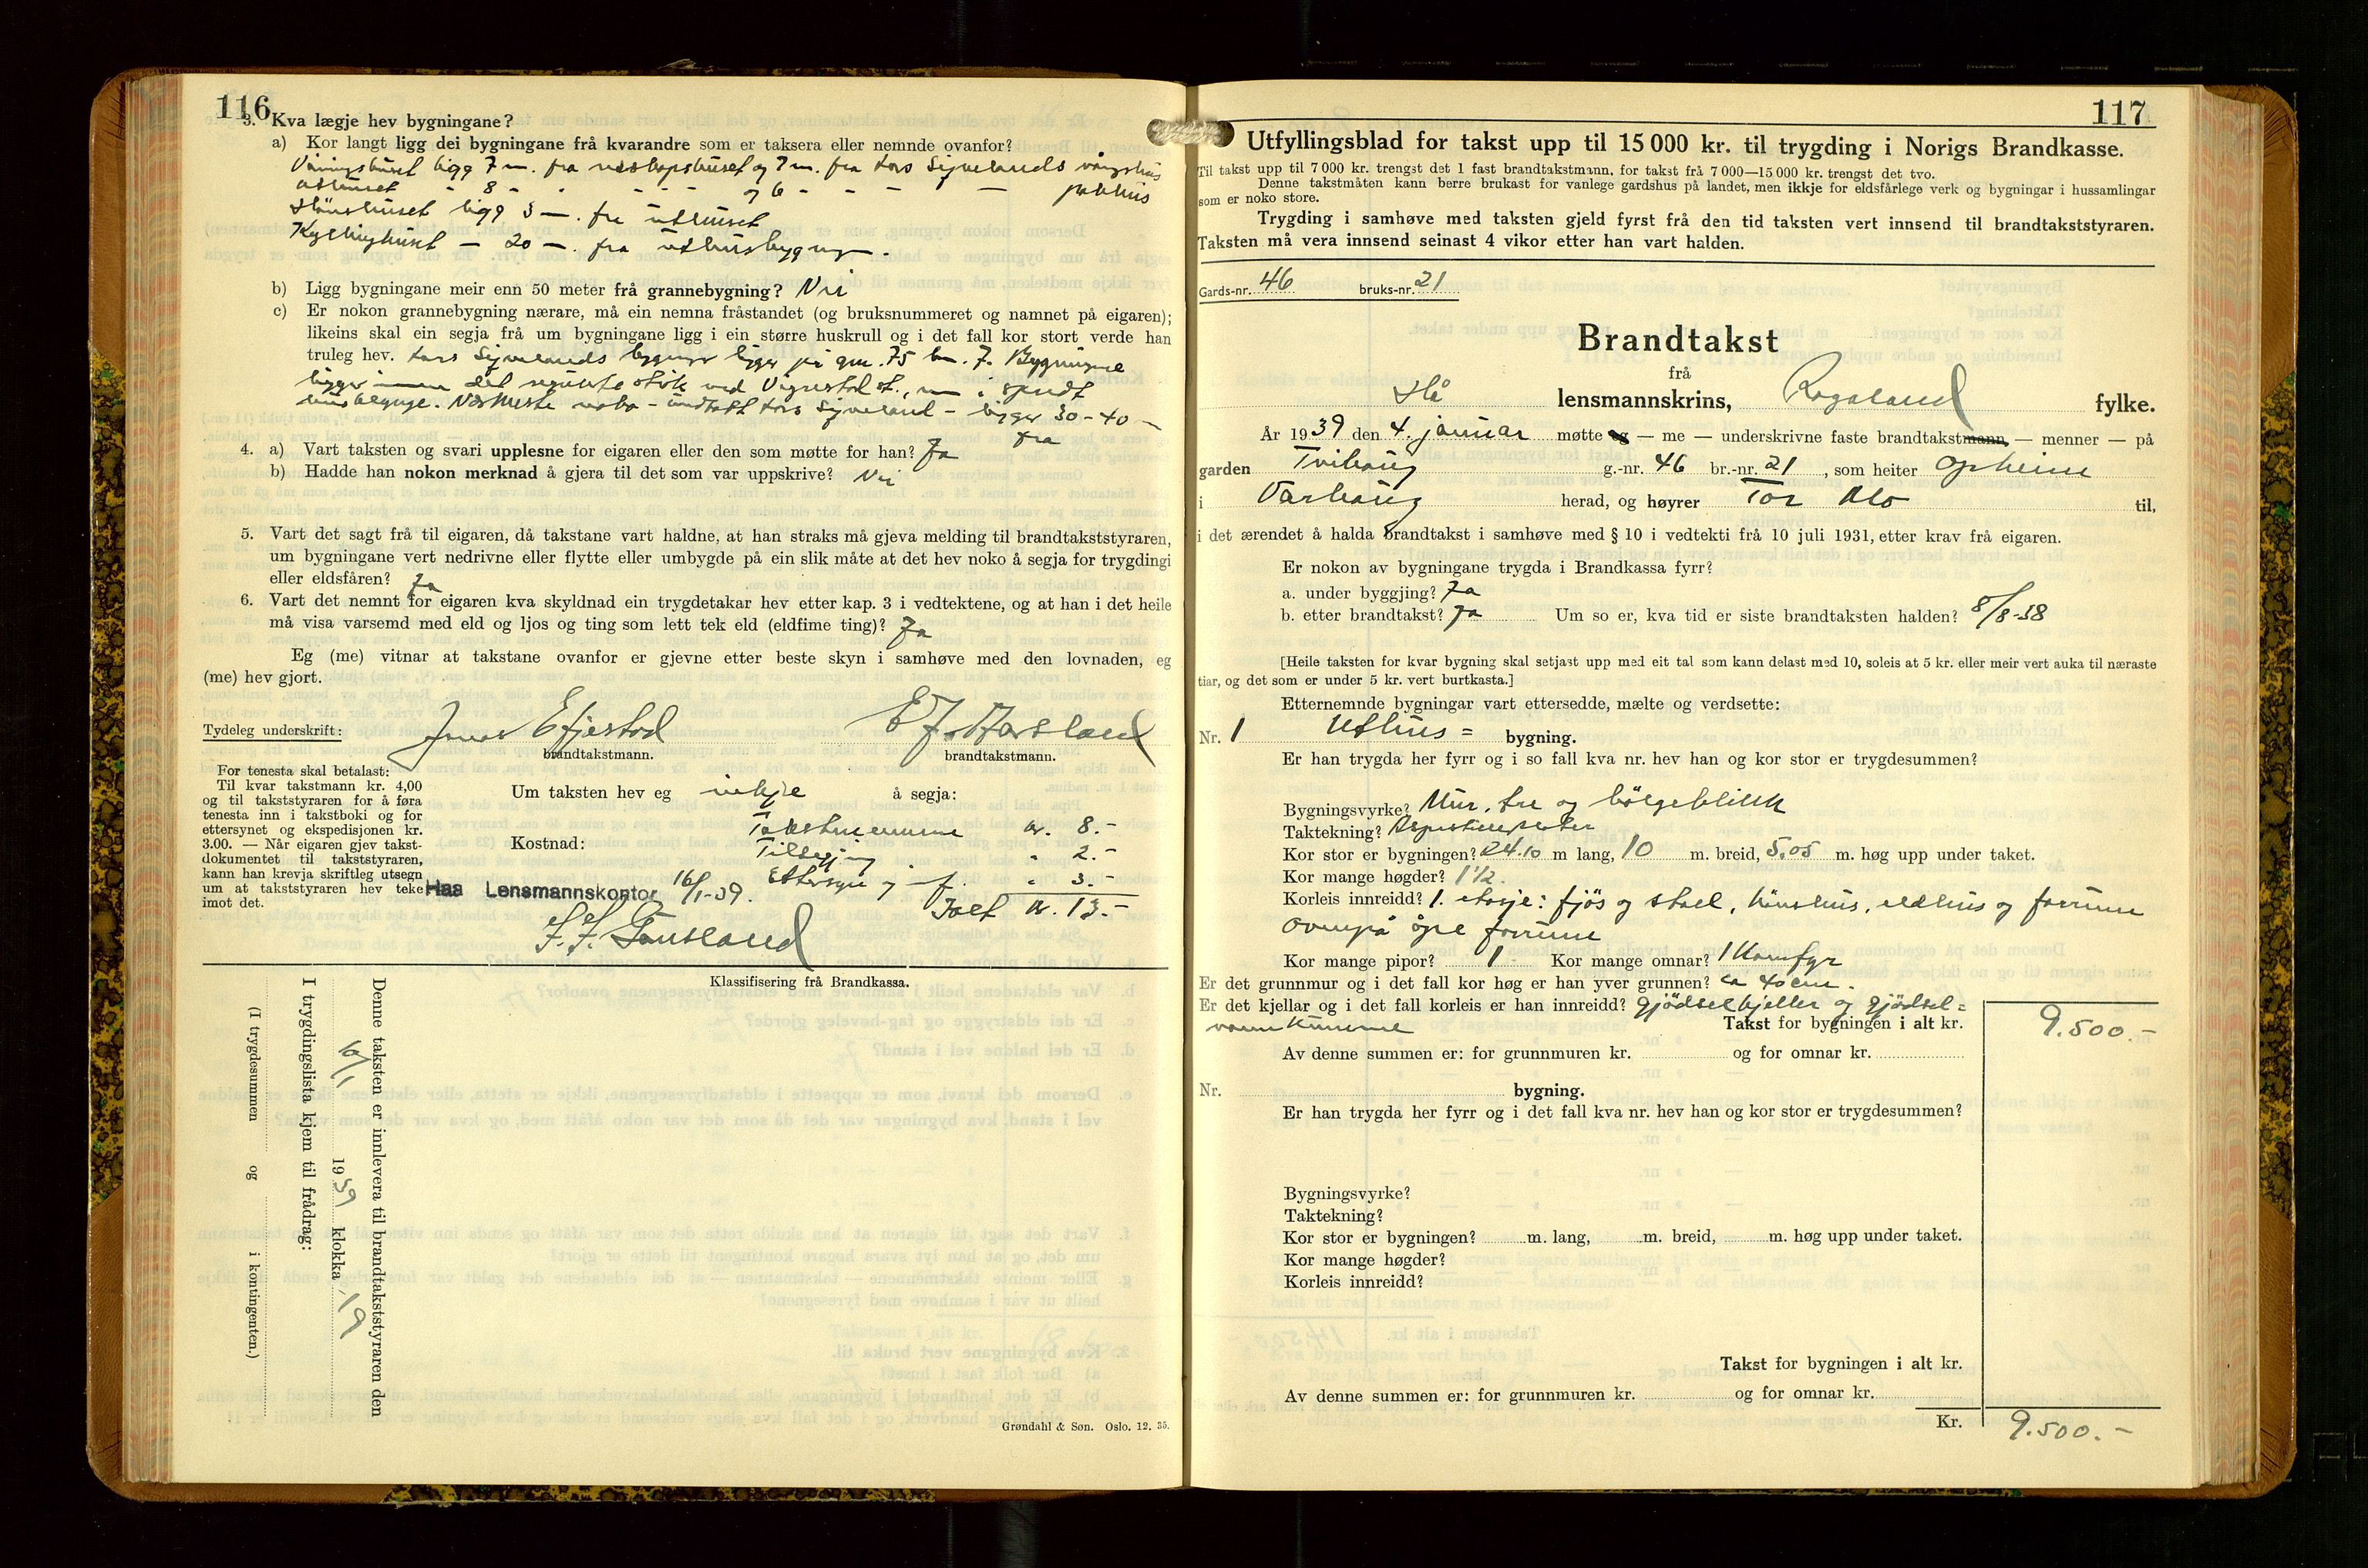 116
3. Kva lægje hev bygningane?
a) Kor langt ligg dei bygningane frå kvarandre som er taksera eller nemnde ovanfor?
Våningshuset ligg 7 m. fra redskapshuset og 7 m. fra Lars Sigvelands våningshus
uthuset - 8 - - - og 6 - - - - pakhus
Hönshuset ligg 3 — . fra uthuset
Kyllinghuset — 20 — . fra uthusbygningen.
b) Ligg bygningane meir enn 50 meter frå grannebygning? Nei
c) Er nokon grannebygning nærare, må ein nemna fråstandet (og bruksnummeret og namnet på eigaren);
likeins skal ein segja frå um bygningane ligg i ein større huskrull og i det fall kor stort verde han
truleg hev. Lars Sigvelands bygninger ligger på gnr. 75 bnr. 7. Bygningene
ligger innen det regulerte strök ved Vigrestad st., men i spredt
husbygnge. Nærmeste nabo - undtatt Lars Sigveland - ligger 30-40 —
fra
4. a) Vart taksten og svari upplesne for eigaren eller den som møtte for han? Ja
b) Hadde han nokon merknad å gjera til det som var uppskrive? Nei
5. Vart det sagt frå til eigaren, då takstane vart haldne, at han straks må gjeva melding til brandtakststyraren,
um bygningane vert nedrivne eller flytte eller umbygde på ein slik måte at det hev noko å segja for trygdingi
eller eldsfåren? Ja
6. Vart det nemnt for eigaren kva skyldnad ein trygdetakar hev etter kap. 3 i vedtektene, og at han i det heile
må visa varsemd med eld og ljos og ting som lett tek eld (eldfime ting)? Ja
Eg (me) vitnar at takstane ovanfor er gjevne etter beste skyn i samhøve med den lovnaden, eg
(me) hev gjort.
Tydeleg underskrift: Jonas Efjestad E J. Aarsland
brandtakstmann. brandtakstmann.
For tenesta skal betalast:
Til kvar takstmann kr. 4,00
og til takststyraren for å føra
tenesta inn i takstboki og for
ettersynet og ekspedisjonen kr.
3.00. — Når eigaren gjev takst-
dokumentet til takststyraren,
kann han krevja skriftleg utsegn
um at takststyraren hev teke
imot det.
Um taksten hev eg inkje å segja:
Kostnad: Takstmennene kr. 8.-
Tilsegjing " 2.-
Ettersyn og f. " 3.-
Ialt kr. 13.-
Haa Lensmannskontor 16/1-39.
Klassifisering frå Brandkassa.
Denne taksten er innlevera til brandtakststyraren den
16/1 1939 klokka 19
I trygdingslista kjem til frådrag:
(I trygdesummen og i kontingenten.)
Grøndahl & Søn. Oslo. 12. 35.
117
Utfyllingsblad for takst upp til 15 000 kr. til trygding i Norigs Brandkasse.
Til takst upp til 7 000 kr. trengst det 1 fast brandtakstmann, for takst frå 7 000—15 000 kr. trengst det tvo.
Denne takstmåten kann berre brukast for vanlege gardshus på landet, men ikkje for eldsfårlege verk og bygningar i hussamlingar
som er noko store.
Trygding i samhøve med taksten gjeld fyrst frå den tid taksten vert innsend til brandtakststyraren.
Taksten må vera innsend seinast 4 vikor etter han vart halden.
Gards-nr. 46 bruks-nr. 21
Brandtakst
frå
Hå lensmannskrins, Rogaland fylke.
År 1939 den 4. januar møtte eg — me — underskrivne faste brandtakstmann — menner — på
garden Tvihaug g.-nr. 46 br.-nr. 21, som heiter Opheim
i Varhaug herad, og høyrer Tor Alo til,
i det ærendet å halda brandtakst i samhøve med § 10 i vedtekti frå 10 juli 1931, etter krav frå eigaren.
Er nokon av bygningane trygda i Brandkassa fyrr?
a. under byggjing? Ja
b. etter brandtakst? Ja Um so er, kva tid er siste brandtaksten halden? 8/8-38
[Heile taksten for kvar bygning skal setjast upp med eit tal som kann delast med 10, soleis at 5 kr. eller meir vert auka til næraste
tiar, og det som er under 5 kr. vert burtkasta.]
Etternemnde bygningar vart ettersedde, mælte og verdsette:
Nr. 1 Uthus = bygning.
Er han trygda her fyrr og i so fall kva nr. hev han og kor stor er trygdesummen?
Bygningsvyrke? Mur, tre og bölgeblikk
Taktekning?
Kor stor er bygningen? 24.10 m lang, 10 m. breid, 5,05 m. høg upp under taket.
Kor mange høgder? 1 1/2.
Korleis innreidd? 1. etasje: fjös og stall, hönshus, eldhus og forrum
ovenpå åpne forrum
Kor mange pipor? 1 Kor mange omnar? 1 Komfyr
Er det grunnmur og i det fall kor høg er han yver grunnen? ca 40 cm.
Er det kjellar og i det fall korleis er han innreidd? gjödselkjeller og gjödsel=
vannkumme Takst for bygningen i alt kr. 9.500.-
Av denne summen er: for grunnmuren kr. og for omnar kr.
Nr. bygning.
Er han trygda her fyrr og i det fall kva nr. hev han og kor stor er trygdesummen?
Bygningsvyrke?
Taktekning?
Kor stor er bygningen? m. lang, m. breid, m. høg upp under taket.
Kor mange høgder?
Korleis innreidd?
Takst for bygningen i alt kr.
Av denne summen er: for grunnmuren kr. og for omnar kr.
Kr. 9.500.-